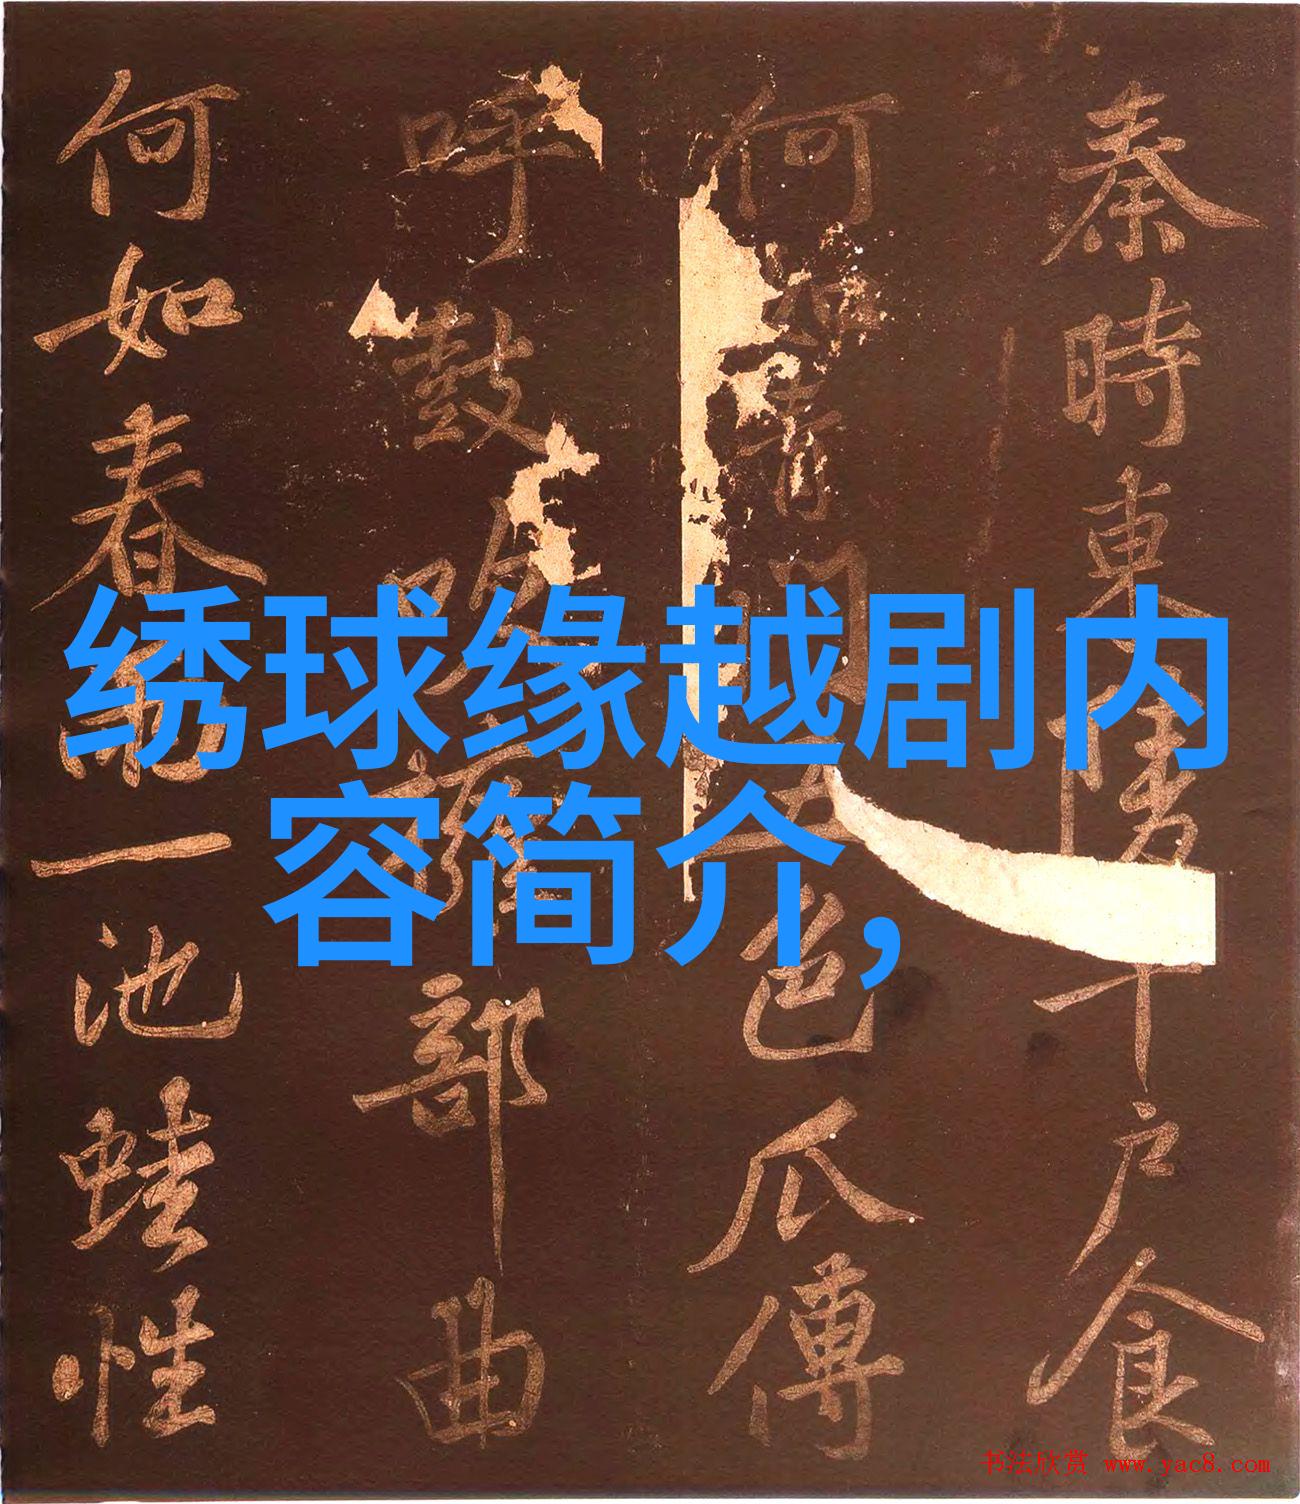 绣球缘越剧内
容简介,
秦時東陵千戶食
何如青門五色瓜傳
呼鼓吹擁部曲
何如春雨一池蛙性
书法欣赏 www.yac8.com